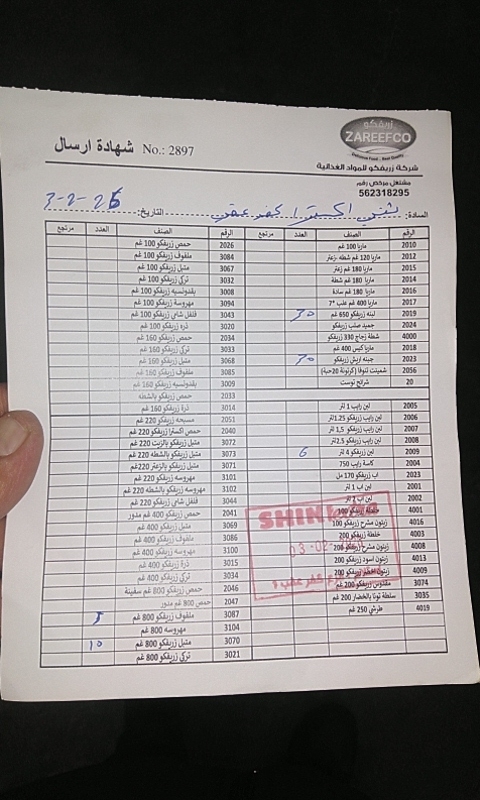 زريفكو
ZAREEFCO
Delicious Food , Best Quality
شركة زريفكو للمواد الغذائية
مشتغل مرخص رقم
562318295
شهادة ارسال No.: 2897
السادة: شني اكسترا كفر عقب التاريخ: 3-2-26
الرقم الصنف العدد مرتجع الرقم الصنف العدد مرتجع
2010 ماربا 100 غم 2026 حمص زريفكو 100 غم
2012 ماربا 120 غم شطه -زعتر 3084 ملفوف زريفكو 100 غم
2015 ماربا 180 غم زعتر 3067 متبل زريفكو 100 غم
2014 ماربا 180 غم شطة 3032 تركي زريفكو 100 غم
2016 ماربا 180 غم سادة 3008 بقدونسيه زريفكو 100 غم
2017 ماربا 400 غم علب *7 3094 مهروسة زريفكو 100 غم
2019 لبنه زريفكو 650 غم 30 3043 فلفل شامي زريفكو 100 غم
2024 جميد صلب زريفكو 3020 ذرة زريفكو 100 غم
4000 شطة زجاج 330 زريفكو 2034 حمص زريفكو 160 غم
2018 ماربا كيس 400 غم 3033 تركي زريفكو 160 غم
2023 جبنه اريش زريفكو 30 3068 متبل زريفكو 160 غم
2056 شمينت تنوفا (كرتونة 20حبة) 3085 ملفوف زريفكو 160 غم
20 شرائح توست 3009 بقدونسيه زريفكو 160 غم
2033 حمص زريفكو بالشطه
2005 لبن رايب 1 لتر 3014 ذرة زريفكو 160 غم
2006 لبن رايب زريفكو 1.25لتر 2051 مسبحه زريفكو 220 غم
2007 لبن رايب زريفكو 1,5 لتر 2040 حمص اكسترا زريفكو 220 غم
2008 لبن رايب زريفكو 2,5لتر 3072 متبل زريفكو بالزيت 220 غم
2009 لبن زريفكو 4 لتر 6 3073 متبل زريفكو بالشطه 220 غم
2004 كاسة رايب 750 3071 متبل زريفكو بالزعتر 220غم
2023 اب زريفكو 170 مل 3101 مهروسه زريفكو 220 غم
2001 لبن اب 1 لتر 3102 مهروسه زريفكو بالشطه 220 غم
2002 لبن اب 2 لتر 3044 فلفل شامي زريفكو 220 غم
4001 زريفكو 100 2041 حمص زريفكو 400 غم مدور
4016 زيتون مشرح زريفكو 100 3069 متبل زريفكو 400 غم
4003 خلطة زريفكو 200 3086 ملفوف زريفكو 400 غم
4008 زيتون مشرح زريفكو 200 3100 مهروسه زريفكو 400 غم
4013 زيتون اسود زريفكو 200 3015 ذرة زريفكو 400 غم
4009 زيتون زريفكو 200 3034 تركي زريفكو 400 غم
3074 مقدوس زريفكو 200 غم 2046 حمص زريفكو 800 غم سفينة
3035 سلطة تونا بالخضار 200 غم 2047 حمص 800 غم مدور
4019 طرشي 250 غم 3087 ملفوف زريفكو 800 غم 5
3104 مهروسه 800 غم
3070 متبل زريفكو 800 غم 10
3021 تركي زريفكو 800 غم